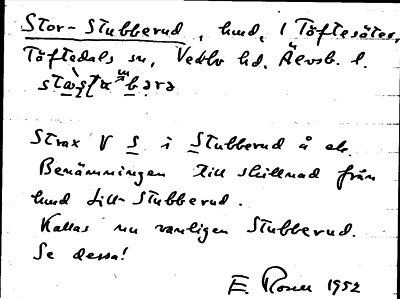 Stor-Stubberud, hmd, i Töftesäter,
Töftedals sn, Vedbo hd, Älvsb. l.
Strax V S i Stubberud å ek.
Benämningen till skillnad från
hmd Lill-Stubberud.
Kallas nu vanligen Stubberud.
Se dessa!
E. Rosell 1952